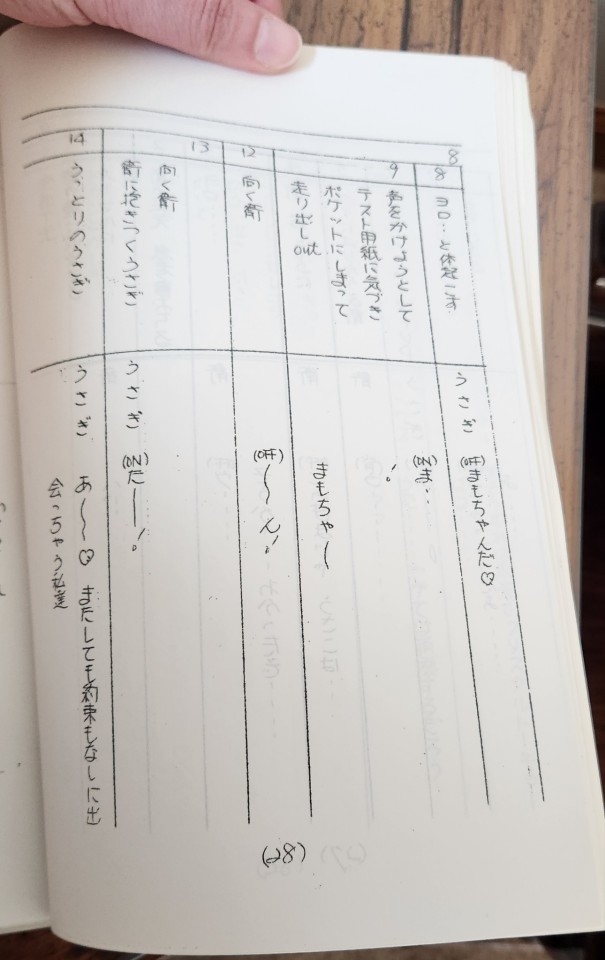 8
8
ヨロ・・と体起こす
うさぎ
(OFF)まもちゃんだ♡
9
声をかけようとして
(ON)ま・・
テスト用紙に気づき
!
ポケットにしまって
走り出しout
まもちゃ〜
12
向く衛
(OFF)〜〜ん!
13
向く衛
衛に抱きつくうさぎ
うさぎ
(ON)だ――!
14
うっとりのうさぎ
うさぎ
あ〜〜♡ またしても約束もなしに出
会っちゃう私達
(28)